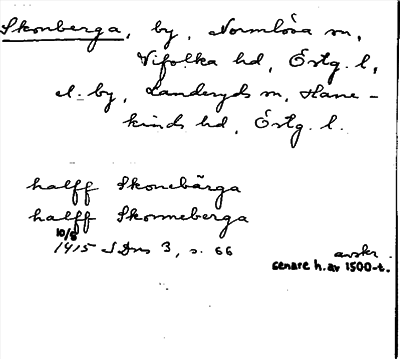 Skonberga, by, Normlösa sn,
Vifolka hd, Östg. l,
el. by, Landeryds sn, Hane-
kinds hd, Östg. l.
halff Skonebärga
halff Skonneberga
10/8
1415 SDns 3, s. 66 avskr.
senare h. av 1500-t.